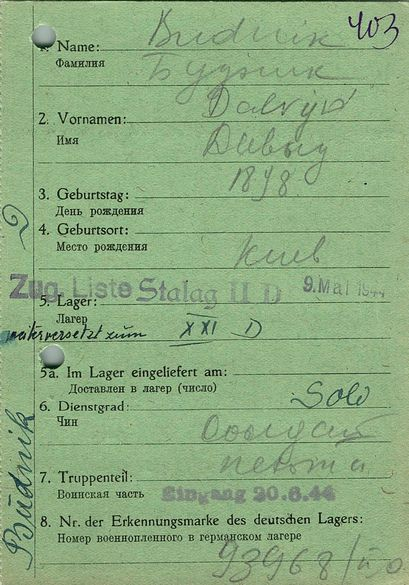 403
1. Name: Budnik
Фамилия Будник
2. Vornamen:
Имя Давыд
1898
3. Geburtstag:
День рождения
4. Geburtsort:
Место рождения Киев
Zug. Liste Stalag II D 9. Mai 1944
5. Lager:
Лагер
weiterversetzt zum XXI D
5a. Im Lager eingeliefert am:
Доставлен в лагер (число)
6. Dienstgrad: Sold
Чин Солдат
пехота
7. Truppenteil:
Воинская часть Eingang 20.6.44
8. Nr. der Erkennungsmarke des deutschen Lagers:
Номер военнопленного в германском лагере
Budnik